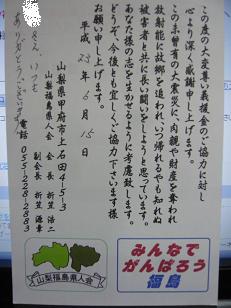 この度の大変尊い義援金のご協力に対し
心より深く感謝申し上げます。
この未曾有の大震災に、肉親や財産を奪われ
放射能に故郷を追われ、いつ帰れるやも知れぬ
被害者と共に長い闘いをしようと思っています。
あなた様の志を生かせるように考慮致します。
どうぞ、今後とも宜しくご協力下さいます様
お願い申し上げます。
平成 23年 6月 15日
山梨県甲府市上石田4-5-3
山梨福島県人会 会長 折笠 浩二
副会長 折笠 源幸
電話 055-228-2883
さん、いつも
ありがとうございます
山梨福島県人会
みんなで
がんばろう
福島